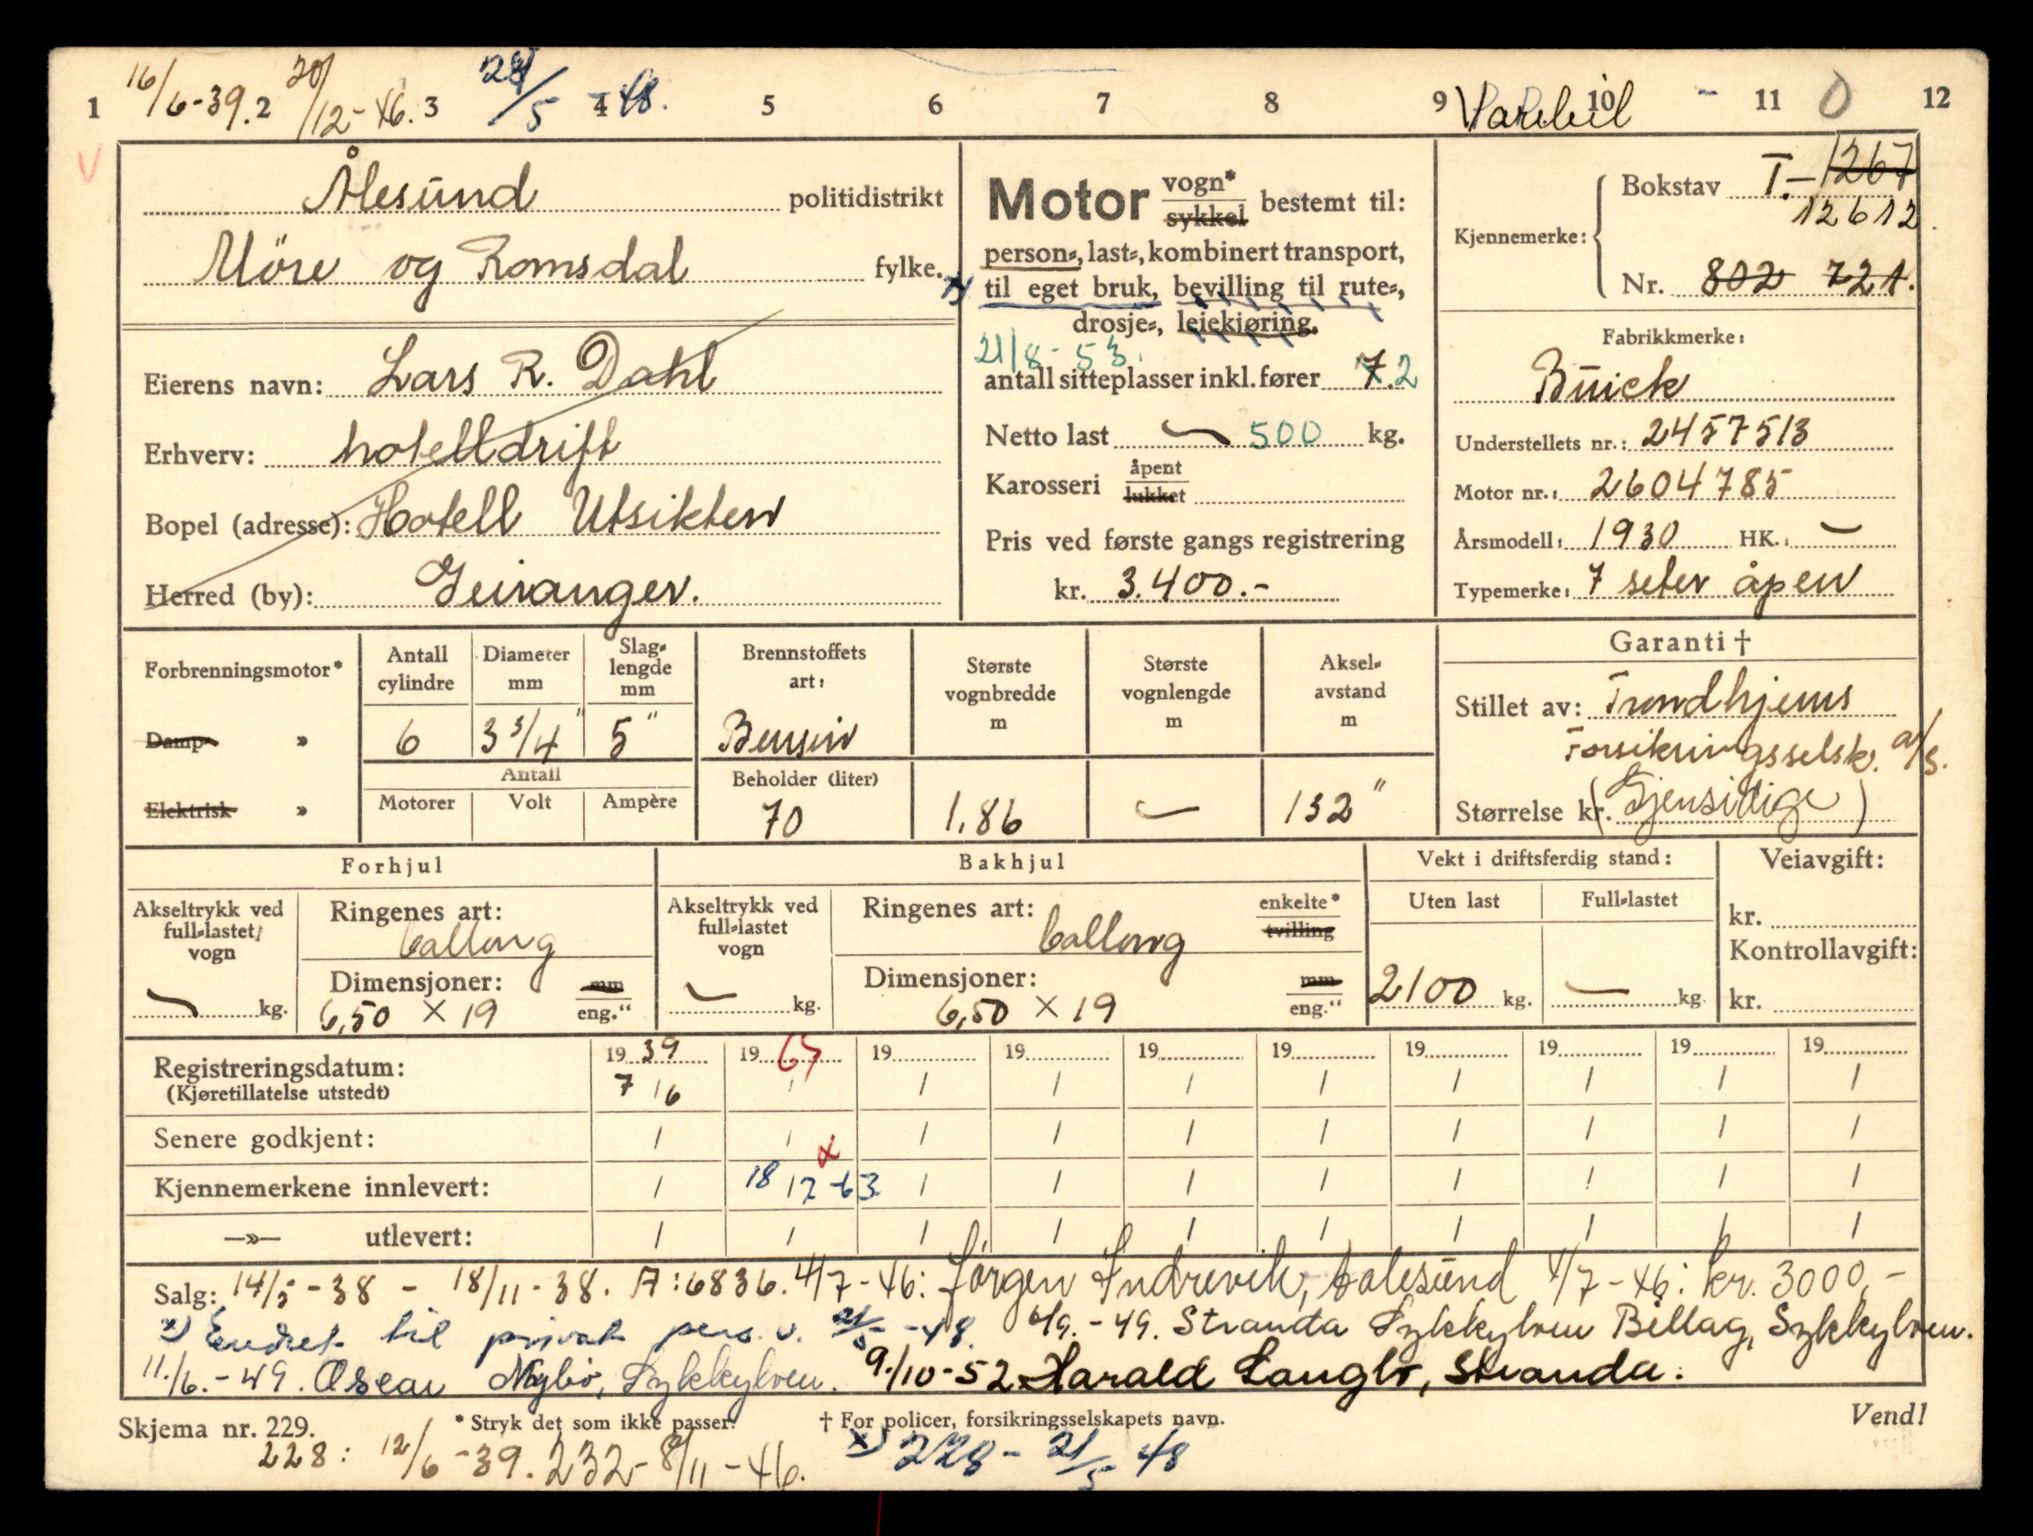 1 16/6-39. 2 20/12-46. 3 28/5 4 -48. 5 6 7 8 9 Varebil 10 - 11 0 12
V
Ålesund politidistrikt
Möre og Romsdal fylke.
Eierens navn: Lars R. Dahl
Erhverv: hotelldrift
Bopel (adresse): Hotell Utsikten
Herred (by): Geiranger.
Motor vogn* sykkel bestemt til:
person-, last-, kombinert transport,
x) til eget bruk, bevilling til rute-,
drosje-, leiekjøring.
21/8-53.
antall sitteplasser inkl. fører 7. 2
Netto last — 500 kg.
Karosseri åpent lukket
Pris ved første gangs registrering
kr. 3.400.-
Kjennemerke: Bokstav T.- 1267
12612.
Nr. 802 721.
Fabrikkmerke:
Buick
Understellets nr.: 2457513
Motor nr.: 2604785
Årsmodell: 1930 HK.: —
Typemerke: 7 seter åpen
Forbrenningsmotor*
Damp- »
Elektrisk »
Antall cylindre
6
Diameter mm
3 3/4"
Slag-lengde mm
5"
Antall
Motorer Volt Ampère
Brennstoffets art:
Bensin
Beholder (liter)
70
Største vognbredde m
1,86
Største vognlengde m
—
Aksel-avstand m
132"
Garanti †
Stillet av: Trondhjems
Forsikringsselsk. a/s.
Størrelse kr. (Gjensidige)
Forhjul
Akseltrykk ved full-lastet vogn
— kg.
Ringenes art:
ballong
Dimensjoner: mm
6,50 × 19 eng."
Bakhjul
Akseltrykk ved full-lastet vogn
— kg.
Ringenes art: enkelte* tvilling
ballong
Dimensjoner: mm
6,50 × 19 eng."
Vekt i driftsferdig stand:
Uten last Full-lastet
2100 kg. — kg.
Veiavgift:
kr.
Kontrollavgift:
kr.
Registreringsdatum: 19 39 19 65 19 19 19 19 19 19 19 19
(Kjøretillatelse utstedt) 7/6 / / / / / / / / /
Senere godkjent: / / / / / / / / / /
x
Kjennemerkene innlevert: / 18/12-63 / / / / / / / /
—»— utlevert: / / / / / / / / / /
Salg: 14/5-38 - 18/11-38. A: 6836. 4/7-46: Jørgen Indrevik, Aalesund 4/7-46: kr. 3000,-
x) Endret til privat pers. v. 21/5-48. 6/9.-49. Stranda Sykkylven Billag, Sykkylven.
11/6.-49. Oscar Nybø, Sykkylven. 9./10-52 Harald Langlo, Stranda.
Skjema nr. 229. * Stryk det som ikke passer. † For policer, forsikringsselskapets navn. Vend!
228: 12/6-39. 232-8/11-46. x) 228-21/5 48